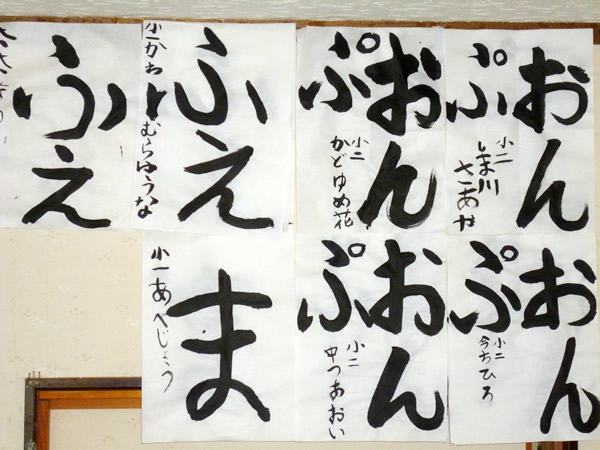 おん
ぷ
小二
しま川
さあや
おん
ぷ
小二
かどゆめ花
ふえ
小一かわむらゆうな
ふえ
おん
ぷ
小二
今ちひろ
おん
ぷ
小二
中つあおい
ま
小一あべじょう